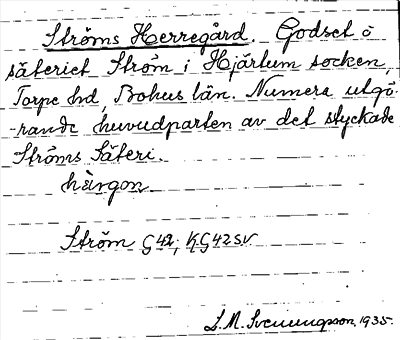 Ströms Herregård. Godset o
säteriet Ström i Hjärtum socken,
Torpe hd, Bohus län. Numera utgö-
rande huvudparten av det styckade
Ströms Säteri.
Ström G42; KG42SV
S.M. Svenungsson, 1935.